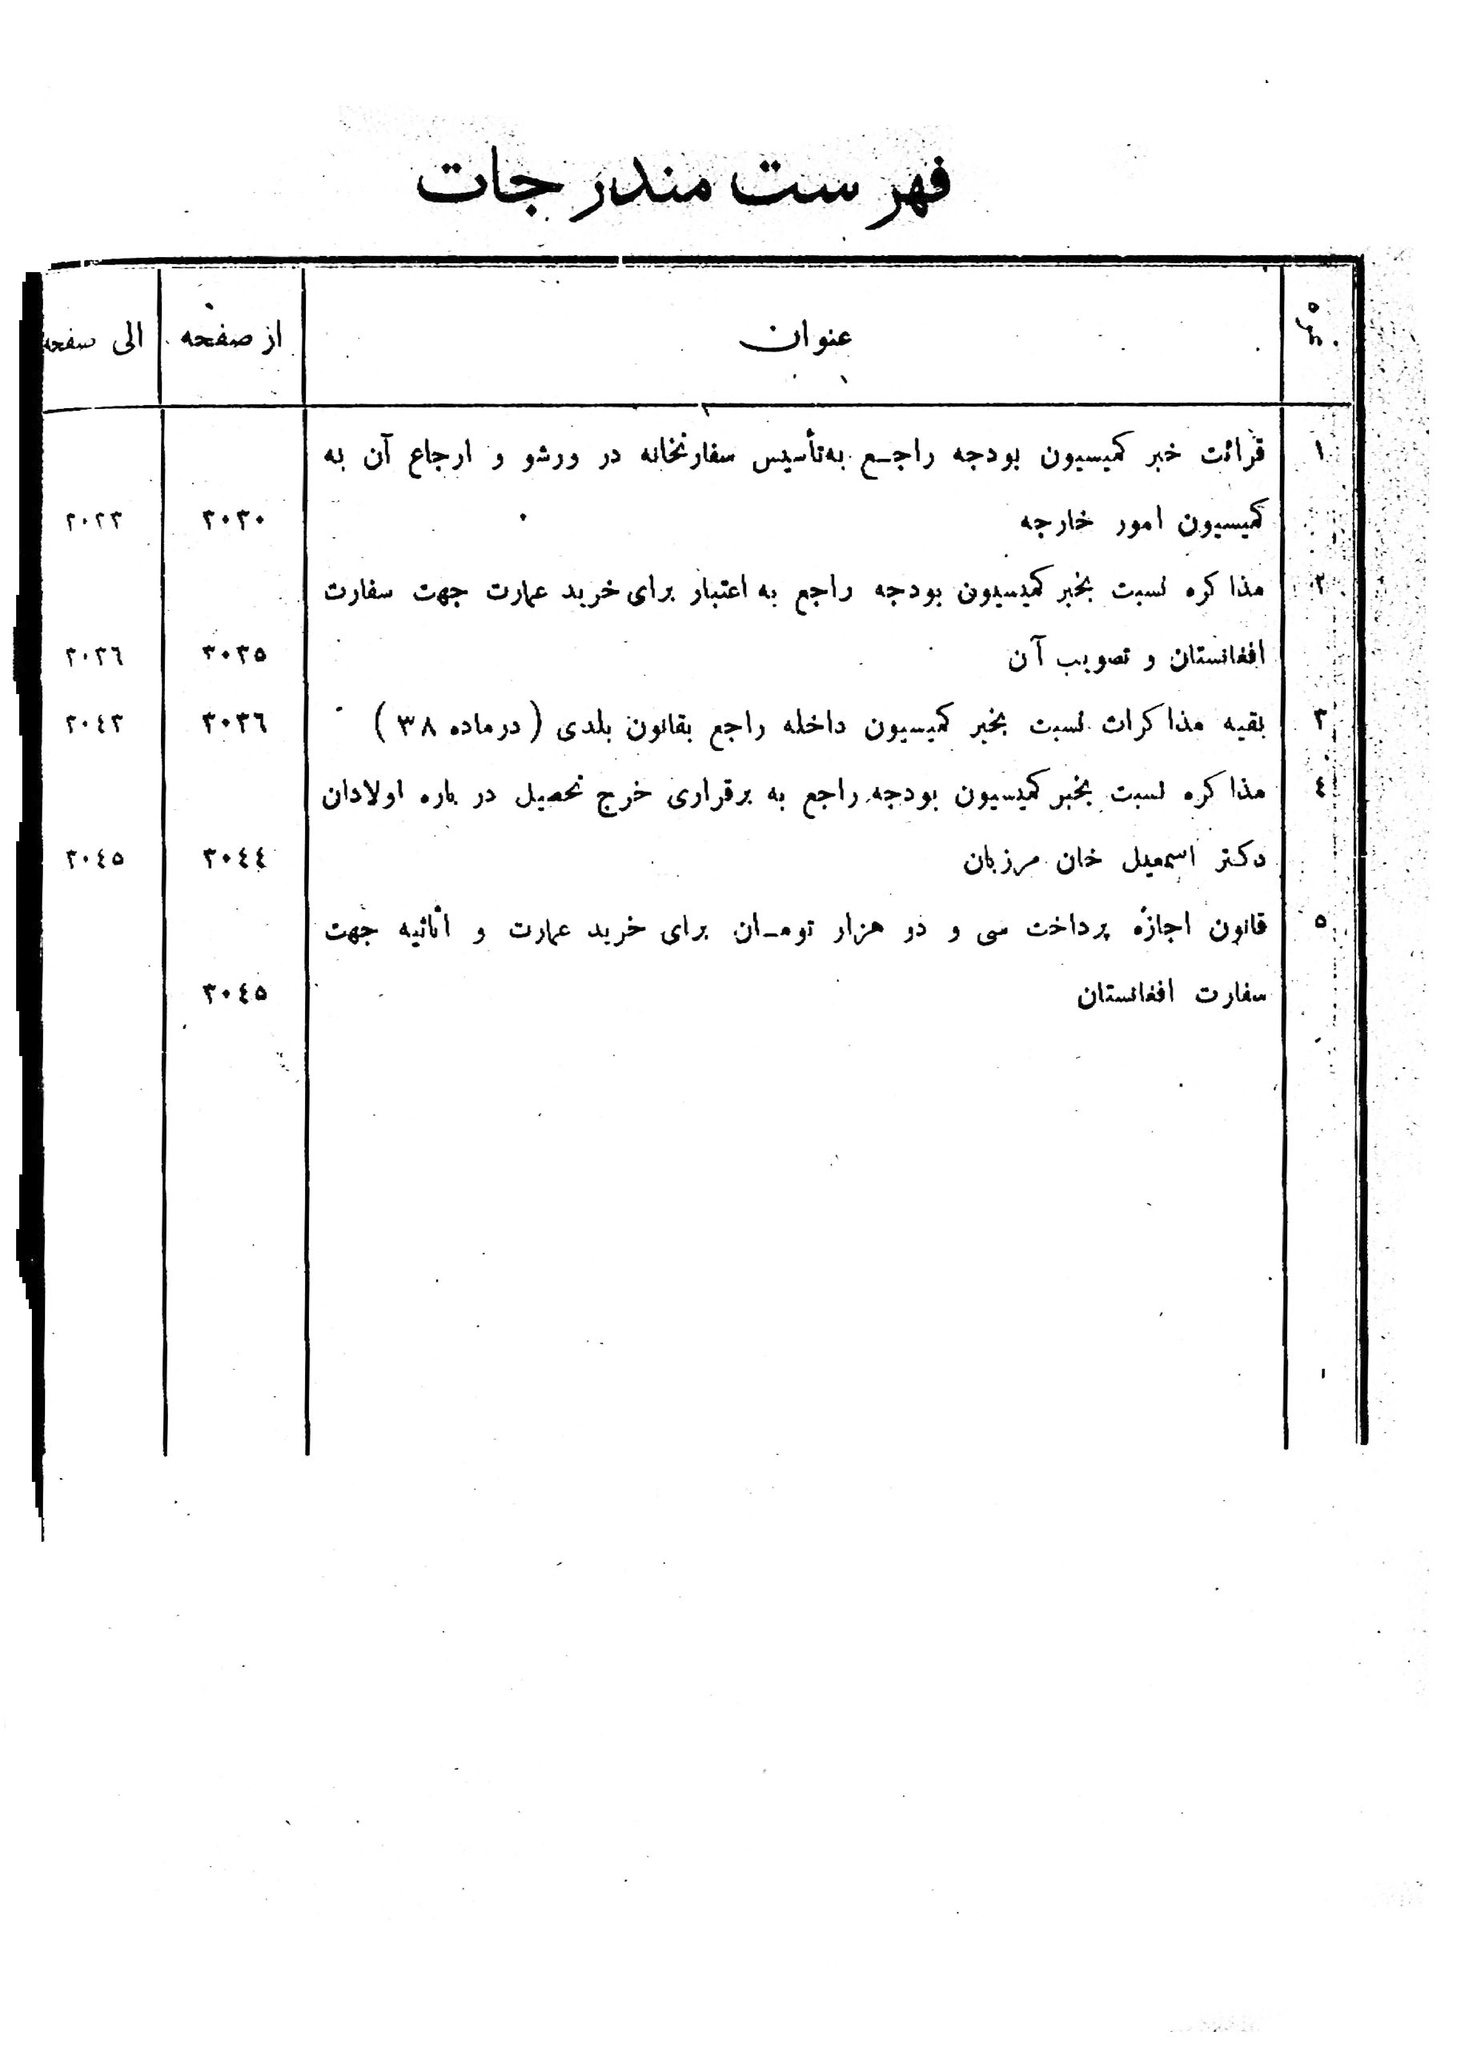 فهرست مندرجات
نمره عنوان از صفحه الی صفحه
۱ قرائت خبر کمیسیون بودجه راجع به تأسیس سفارتخانه در ورشو و ارجاع آن به
کمیسیون امور خارجه ۳۰۳۰ ۳۰۳۳
۲ مذاکره نسبت بخبر کمیسیون بودجه راجع به اعتبار برای خرید عمارت جهت سفارت
افغانستان و تصویب آن ۳۰۳۵ ۳۰۳٦
۳ بقیه مذاکرات نسبت بخبر کمیسیون داخله راجع بقانون بلدی (در ماده ۳۸) ۳۰۳٦ ۳۰٤۳
٤ مذاکره نسبت بخبر کمیسیون بودجه راجع به برقراری خرج تحصیل در باره اولادان
دکتر اسمعیل خان مرزبان ۳۰٤٤ ۳۰٤۵
۵ قانون اجازه پرداخت سی و دو هزار تومان برای خرید عمارت و اثاثیه جهت
سفارت افغانستان ۳۰٤۵